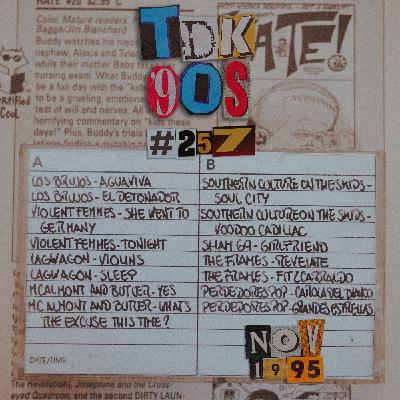 HATE #20 $2.95 C
Color, Mature readers. P
Bagge/Jim Blanchard
Buddy watches his niece
nephew, Alexis and Tyler
while their mother Babs
nursing exam. What Budd
be a fun day with the "kids
to be a grueling, emotional
test of will and nerves. All
horrifying commentary on "kids these
days!" Plus, Buddy's trials
Certified
Cool
ATE!
TDK
'90S
#257
A
LOS BRUJOS - AGUAVIVA
LOS BRUJOS - EL DETONADOR
VIOLENT FEMMES - SHE WENT TO
GERMANY
VIOLENT FEMMES - TONIGHT
LAGWAGON - VIOLINS
LAGWAGON - SLEEP
MCALMONT AND BUTLER - YES
MCALMONT AND BUTLER - WHAT'S
THE EXCUSE THIS TIME?
DATE/TIME
B
SOUTHERN CULTURE ON THE SKIDS -
SOUL CITY
SOUTHERN CULTURE ON THE SKIDS -
VOODOO CADILLAC
SHAM 69 - GIRLFRIEND
THE FRAMES - REVELATE
THE FRAMES - FITZCARRALDO
PERDEDORES POP - CAÑOLA DEL DIANCO
PERDEDORES POP - GRANDES ESTRELLAS
NOV
1995
The Revolution), Josephine and the Cross-
eyed Quadroon, and the second DIRTY LAUN-